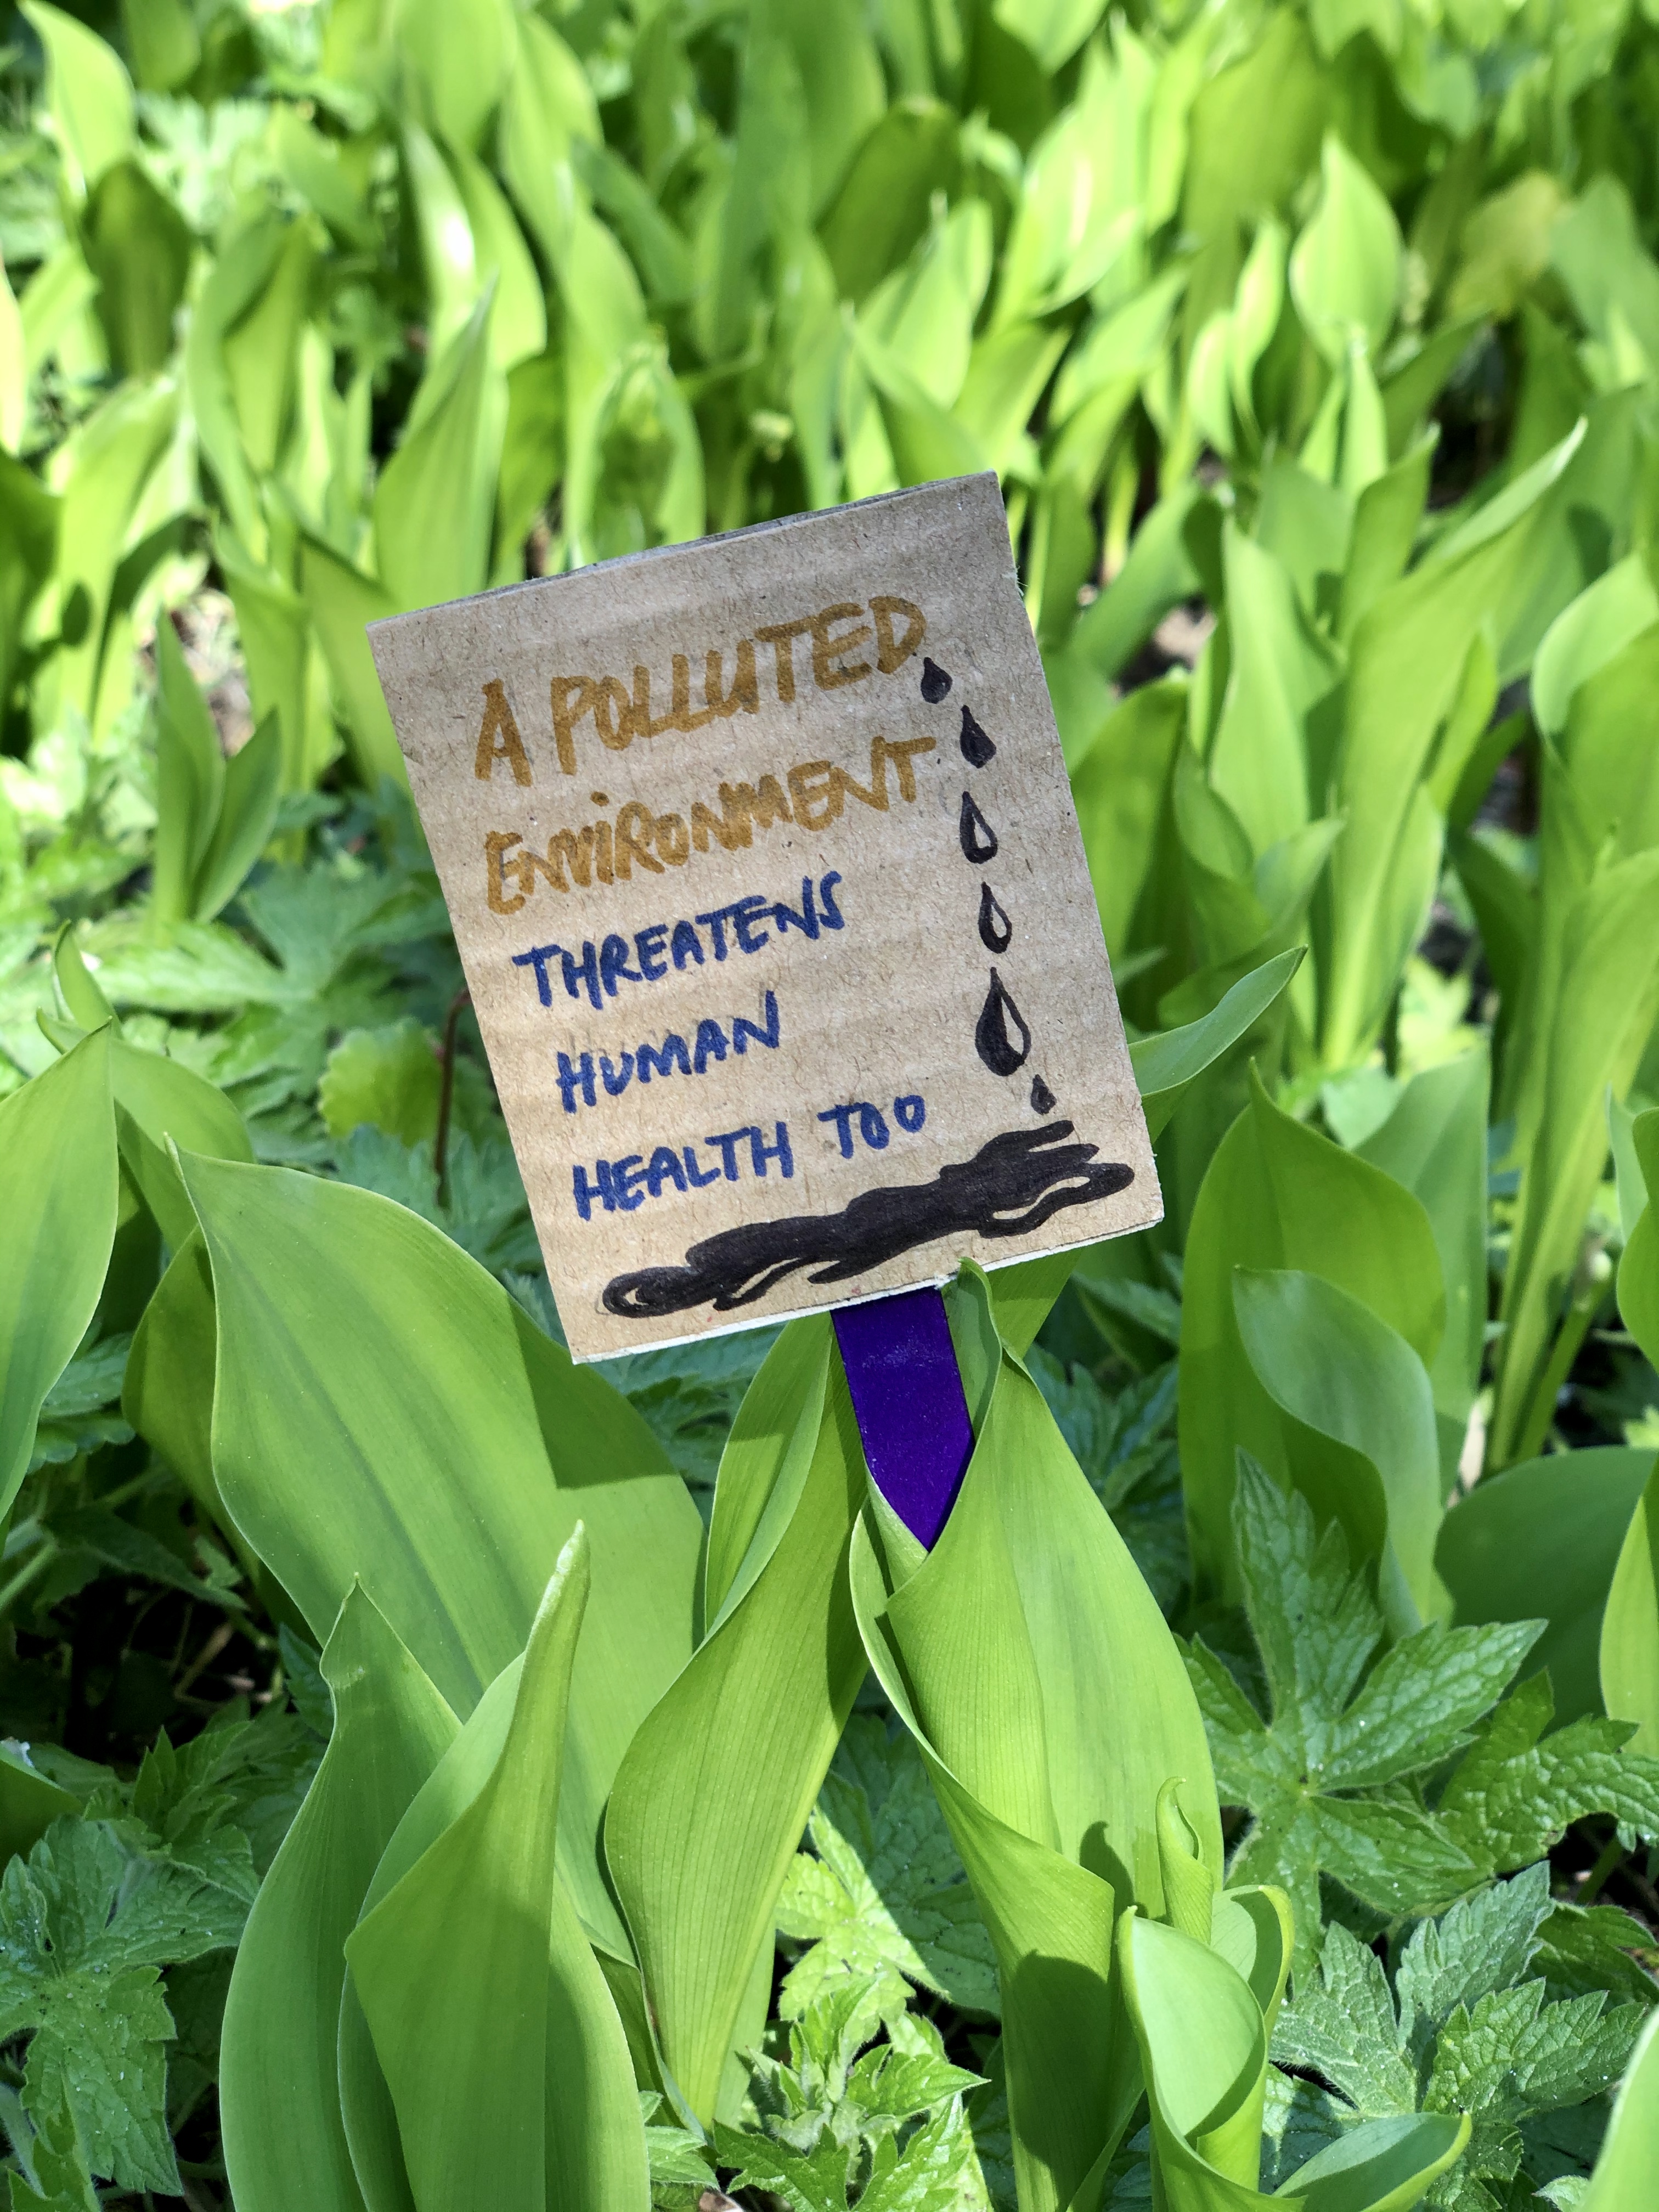 A POLLUTED
ENViRONMENT
THREATENS
HUMAN
HEALTH TOO